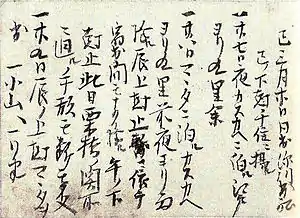 巳三月廿日日出深川出船
巳ノ下尅千住ニ揚ル
一廿七日夜カスカベニ泊ル江戸
ヨリ九里余
一廿八日マヽダニ泊ルカスカベ
ヨリ九里前夜ヨリ雨
降ル辰上尅止ニ依テ
宿出間モナク降ル午ノ下
尅止此日栗橋ノ関所
通ル手形モ断モ不入
一廿九日辰ノ上尅マヽダヲ
出 一小山ヘ一リ半